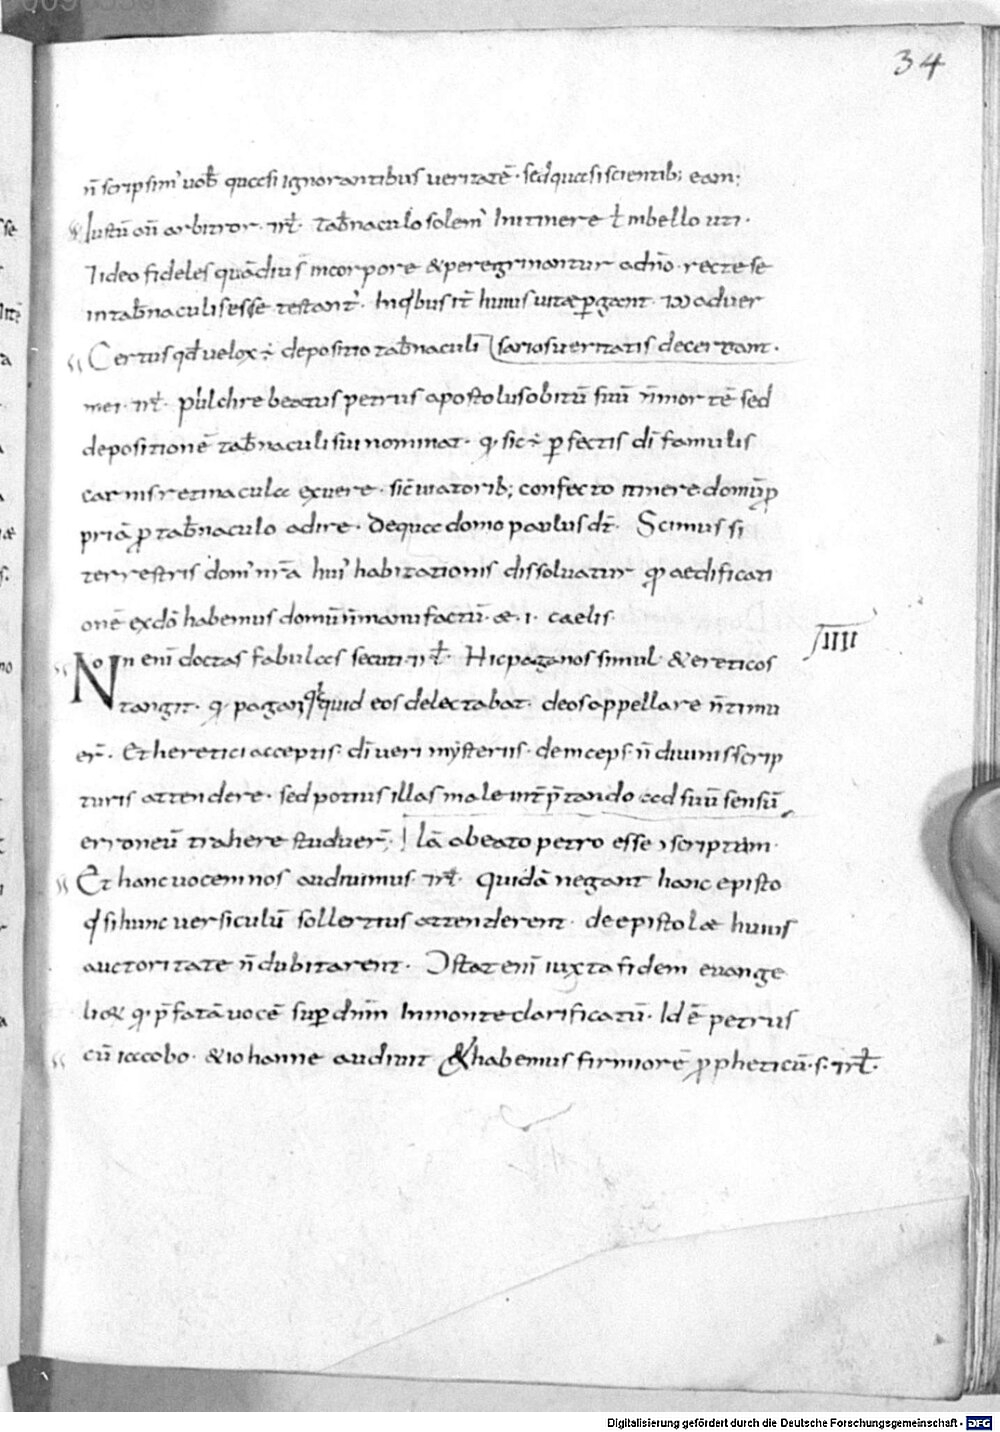 34
n̄ scripsim' uob̄ quasi ignorantibus ueritatē · sed quasi scientib; eam;
Iustū aū arbitror · rł · Tab̄naculo solem' In itinere ł in bello uti ·
Ideo fideles quādius in corpore & peregrinantur a dn̄o · recte se
in tab̄naculis esse testant' · In q̇bus it̄ huius uitæ p̱gant · aduer
Certus qd̄ uelox ÷ depositio tab̄naculi sarios ueritatis decertant ·
mei · rł · pulchre beatus petrus apostolus obitū suū n̄ mortē sed
depositionē tab̄naculi sui nominat · q · sic ÷ p̱fectis dī famulis
carnis retinacula exuere · sic̄ uiatorib; confecto itinere · domū p̱
priā p̱ tab̄naculo adire · De qua domo paulus dt̄ · Scimus si
terrestris dom' nr̄a hui' habitationis dissoluatur qđ aedificati
onē ex dō habemus domū n̄ manufactū · æ · i · caelis ·
Non enī doctas fabulas secuti · rł · Hic paganos simul & ereticos
IIII
tangit · q · pagani qd̄ quid eos delectabat · deos appellare n̄ timu
er̄ · Et heretici acceptis · dī ueri mysteriis · deinceps · n̄ diuinis scrip
turis attendere · sed potius illas male int̄p̱tando ad suū sensū
erroneū trahere studuer̄ ; lā a beato petro esse scriptam ·
Et hanc uocem nos audiuimus · rł · Quidā negant hanc episto
q̇ si hunc uersiculū sollertius attenderent · de epistolæ huius
auctoritate n̄ dubitarent · Ostat enī iuxta fidem euange
licā q · p̄fatā uocē sup̱ dnm̄ In monte clarificatū · Id ē petrus
cū iacobo · & iohanne audiuit & habemus firmiorē p̱pheticū · s · rł ·
Digitalisierung gefördert durch die Deutsche Forschungsgemeinschaft - DFG